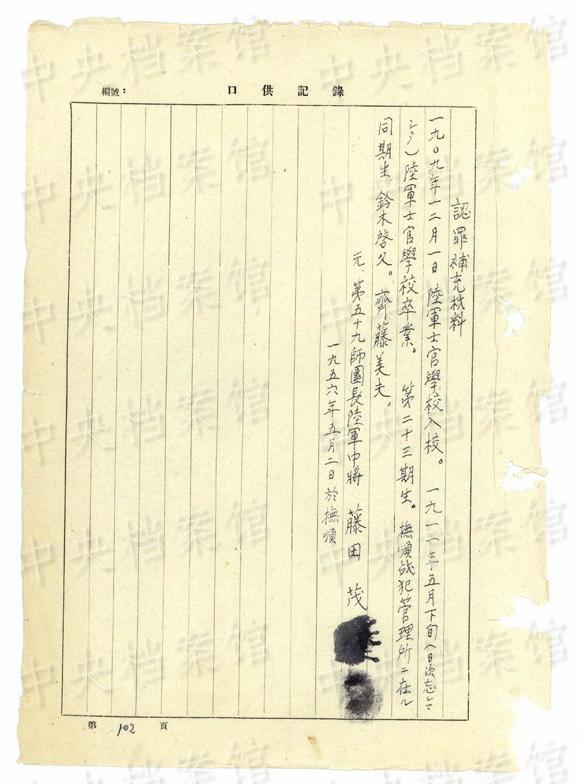 編號：
口供記錄
認罪補充材料
一九〇九年一二月一日陸軍士官學校入校。一九一一年五月下旬（日次忘レマシタ）陸軍士官學校卒業。第二十三期生。撫順战犯管理所ニ在ル
同期生 鈴木啓久。齊藤美夫。
元、第五十九師團長陸軍中將 藤田茂
一九五六年五月二日於撫順
第 102 頁
中央档案馆